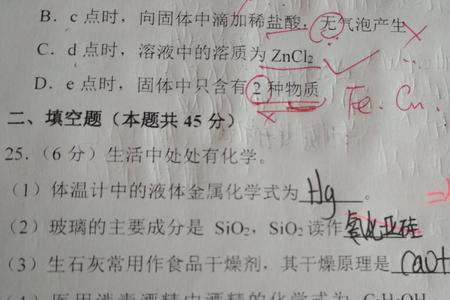 B. c 点时，向固体中滴加稀盐酸，无气泡产生
C. d 点时，溶液中的溶质为 ZnCl₂
D. e 点时，固体中只含有 2 种物质 Fe. Cu.
二、填空题（本题共 45 分）
25.（6 分）生活中处处有化学。
（1）体温计中的液体金属化学式为 Hg 。
（2）玻璃的主要成分是 SiO₂，SiO₂ 读作
（3）生石灰常用作食品干燥剂，其干燥原理是 CaO+
（4）医用消毒酒精中酒精的化学式为 C₂H₅OH